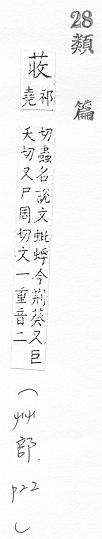 28
類篇
荍
祁
堯
切蟲名說文蚍蜉今荆葵又巨
夭切又尸周切文一重音二
(艸部. p22)